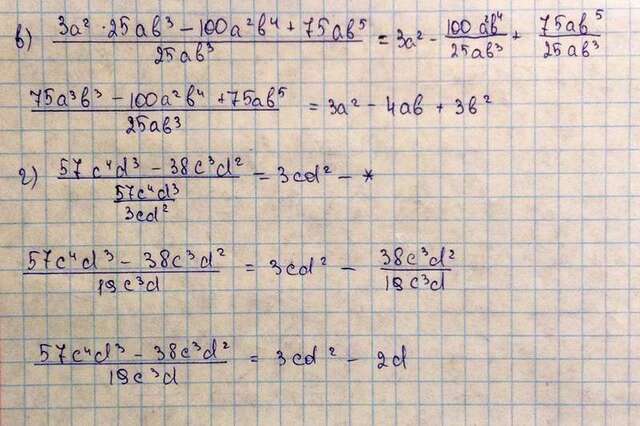 в) (3a² · 25ab³ − 100a²b⁴ + 75ab⁵)/(25ab³) = 3a² − (100a²b⁴)/(25ab³) + (75ab⁵)/(25ab³)
(75a³b³ − 100a²b⁴ + 75ab⁵)/(25ab³) = 3a² − 4ab + 3b²
г) (57c⁴d³ − 38c³d²)/((57c⁴d³)/(3cd²)) = 3cd² − *
(57c⁴d³ − 38c³d²)/(19c³d) = 3cd² − (38c³d²)/(19c³d)
(57c⁴d³ − 38c³d²)/(19c³d) = 3cd² − 2d